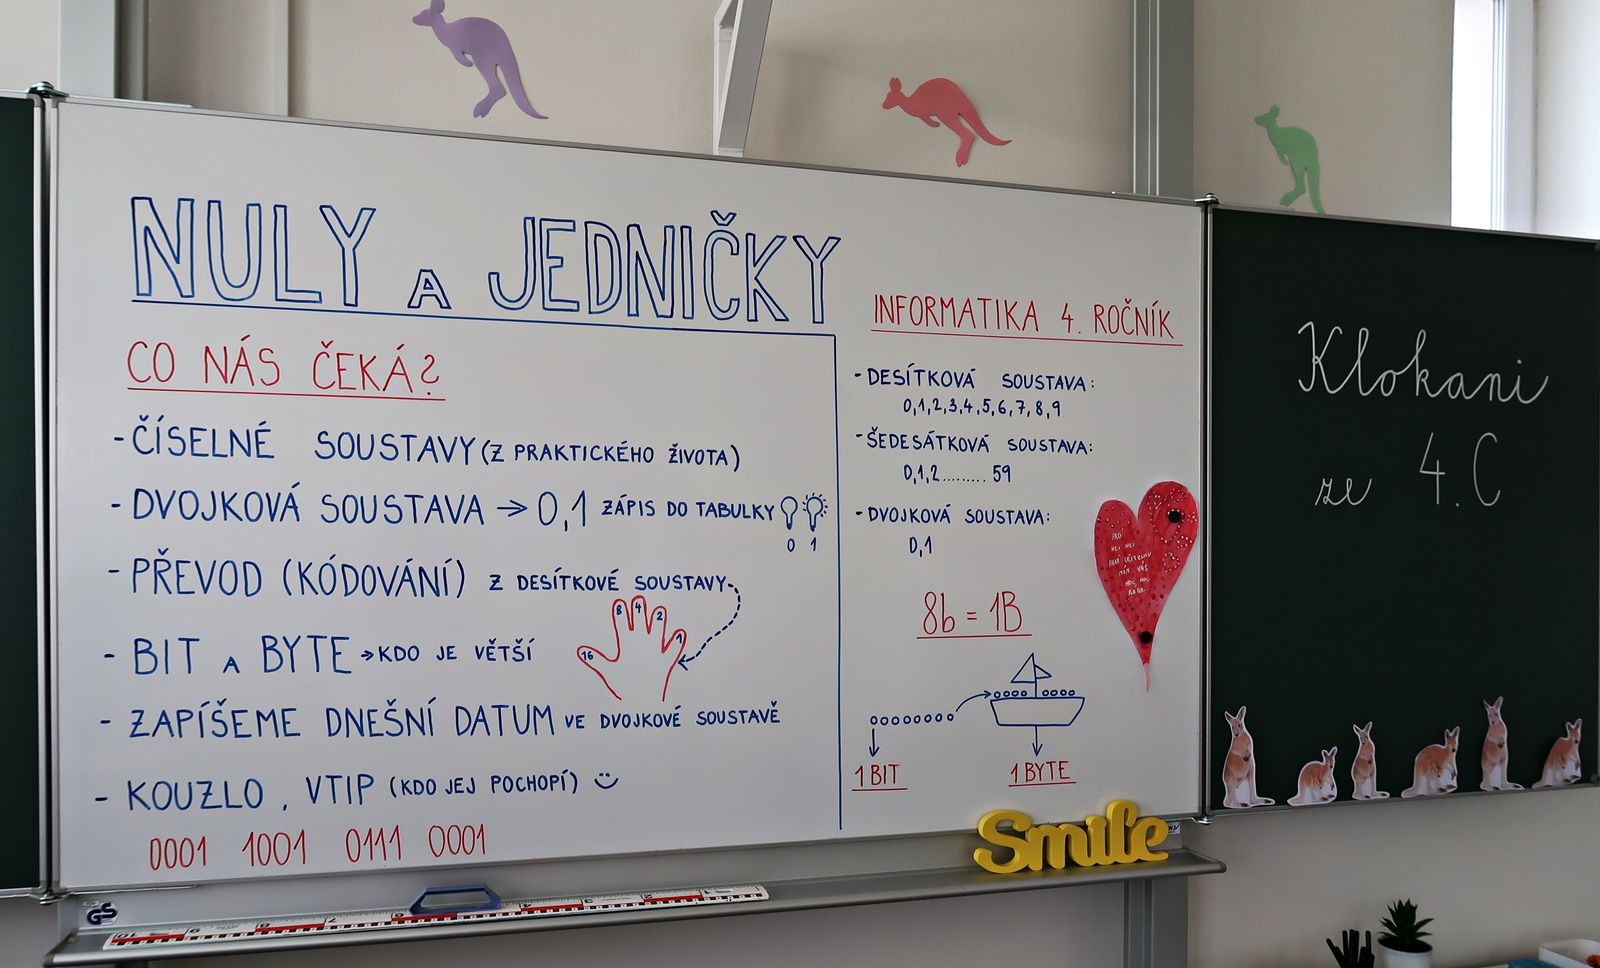 NULY A JEDNIČKY
CO NÁS ČEKÁ?
- ČÍSELNÉ SOUSTAVY (Z PRAKTICKÉHO ŽIVOTA)
- DVOJKOVÁ SOUSTAVA → 0,1 ZÁPIS DO TABULKY
0 1
- PŘEVOD (KÓDOVÁNÍ) Z DESÍTKOVÉ SOUSTAVY
16 8 4 2 1
- BIT A BYTE → KDO JE VĚTŠÍ
- ZAPÍŠEME DNEŠNÍ DATUM VE DVOJKOVÉ SOUSTAVĚ
- KOUZLO, VTIP (KDO JEJ POCHOPÍ)
0001 1001 0111 0001
INFORMATIKA 4. ROČNÍK
- DESÍTKOVÁ SOUSTAVA:
0,1,2,3,4,5,6,7,8,9
- ŠEDESÁTKOVÁ SOUSTAVA:
0,1,2......... 59
- DVOJKOVÁ SOUSTAVA:
0,1
8b = 1B
1 BIT
1 BYTE
Smile
GS
Klokani
ze 4.C